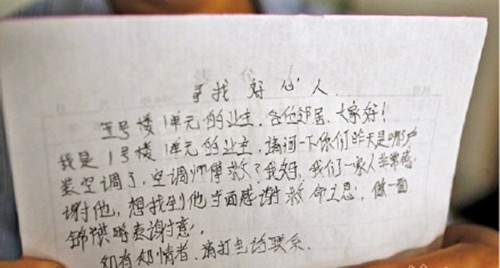 寻找好心人
五号楼1单元的业主,各位邻居,大家好!
我是1号楼1单元的业主,请问一下你们昨天是哪户
装空调了,空调师傅救了我妈,我们一家人非常感
谢他,想找到他当面感谢救命之恩,做一面
锦旗略表谢意,
如有知情者,请打电话联系。